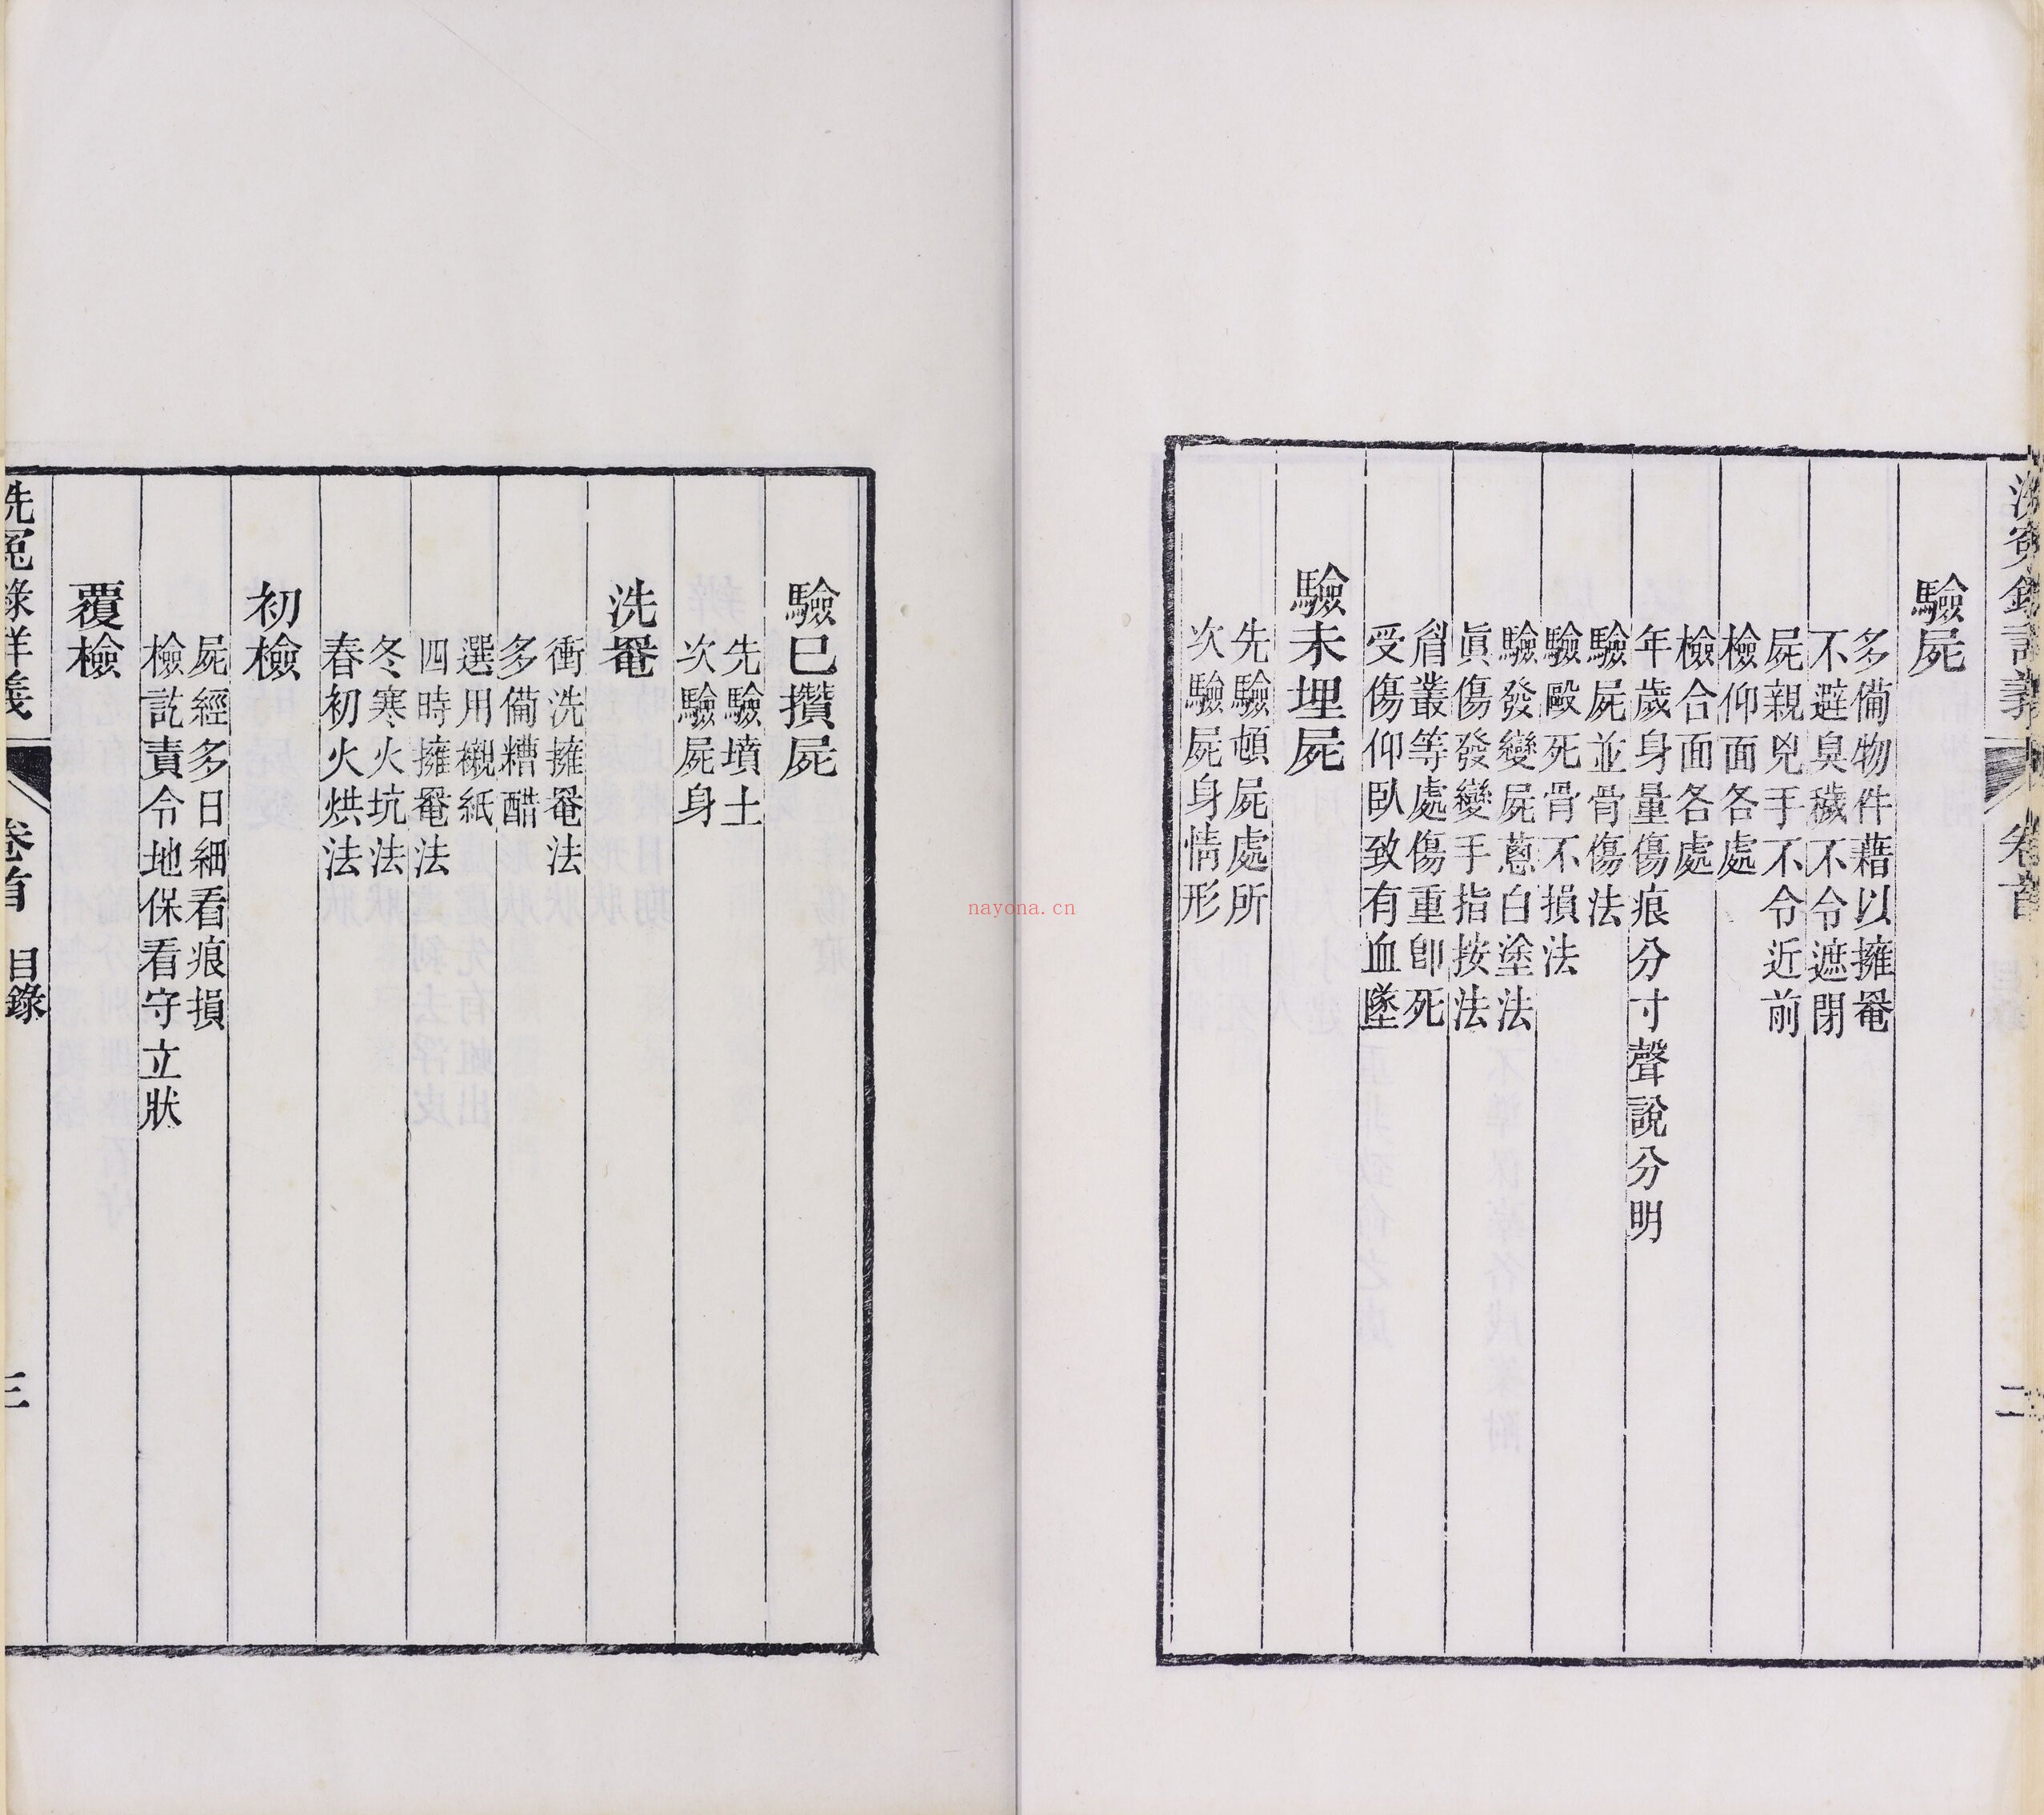 洗冤錄詳義 卷首 目錄 二
驗屍
多備物件藉以擁罨
不避臭穢不令遮閉
屍親兇手不令近前
檢仰面各處
檢合面各處
年歲身量傷痕分寸聲說分明
驗屍並骨傷法
驗毆死骨不損法
驗發變屍蔥白塗法
眞傷發變手指按法
肩叢等處傷重卽死
受傷仰臥致有血墜
驗未埋屍
先驗頓屍處所
次驗屍身情形
驗已攢屍
先驗墳土
次驗屍身
洗罨
衝洗擁罨法
多備糟醋
選用櫬紙
四時擁罨法
冬寒火坑法
春初火烘法
初檢
屍經多日細看痕損
檢訖責令地保看守立狀
覆檢
洗冤錄詳義 卷首 目錄 三
nayona.cn